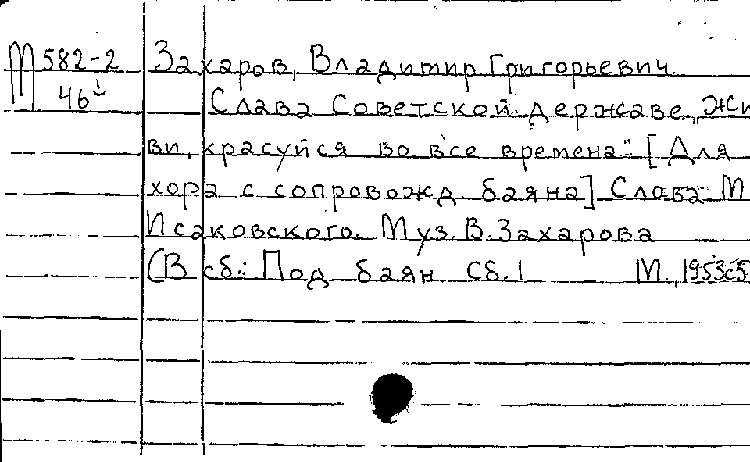 М 582-2 Захаров, Владимир Григорьевич
46 Слава Советской державе, Жи
ви, красуйся во все времена: [Для
хора с сопровожд. баяна] Слова М.
Исаковского. Муз. В. Захарова
(В сб.: Под баян Сб. 1 М., 1953 с5